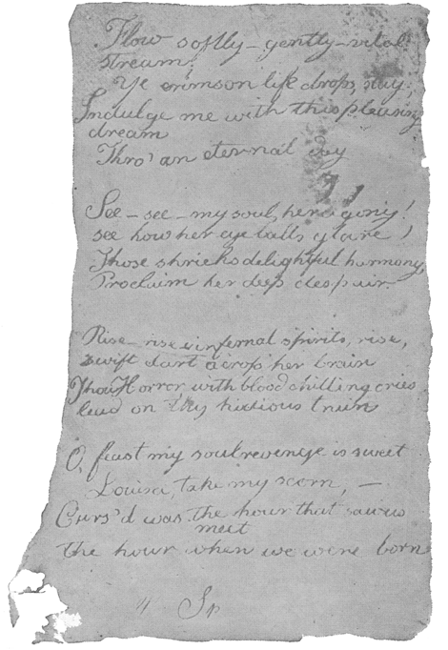 Flow softly – gently – vital
stream;
Ye crimson life drops, stay,
Indulge me with this pleasing
dream
Thro' an eternal day
See – see – my soul, her agony!
see how her eye balls glare!
Those shrieks delightful harmony,
Proclaim her deep despair.
Rise – rise infernal spirits, rise,
swift dart across her brain
Thou Horror with blood chilling cries
lead on thy hideous train
O, feast my soul revenge is sweet
Louisa, take my scorn, –
Curs'd was the hour that saw us
meet
the hour when we were born